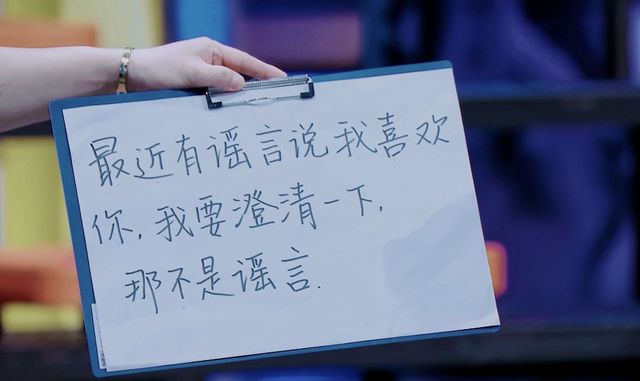 最近有谣言说我喜欢
你,我要澄清一下,
那不是谣言.